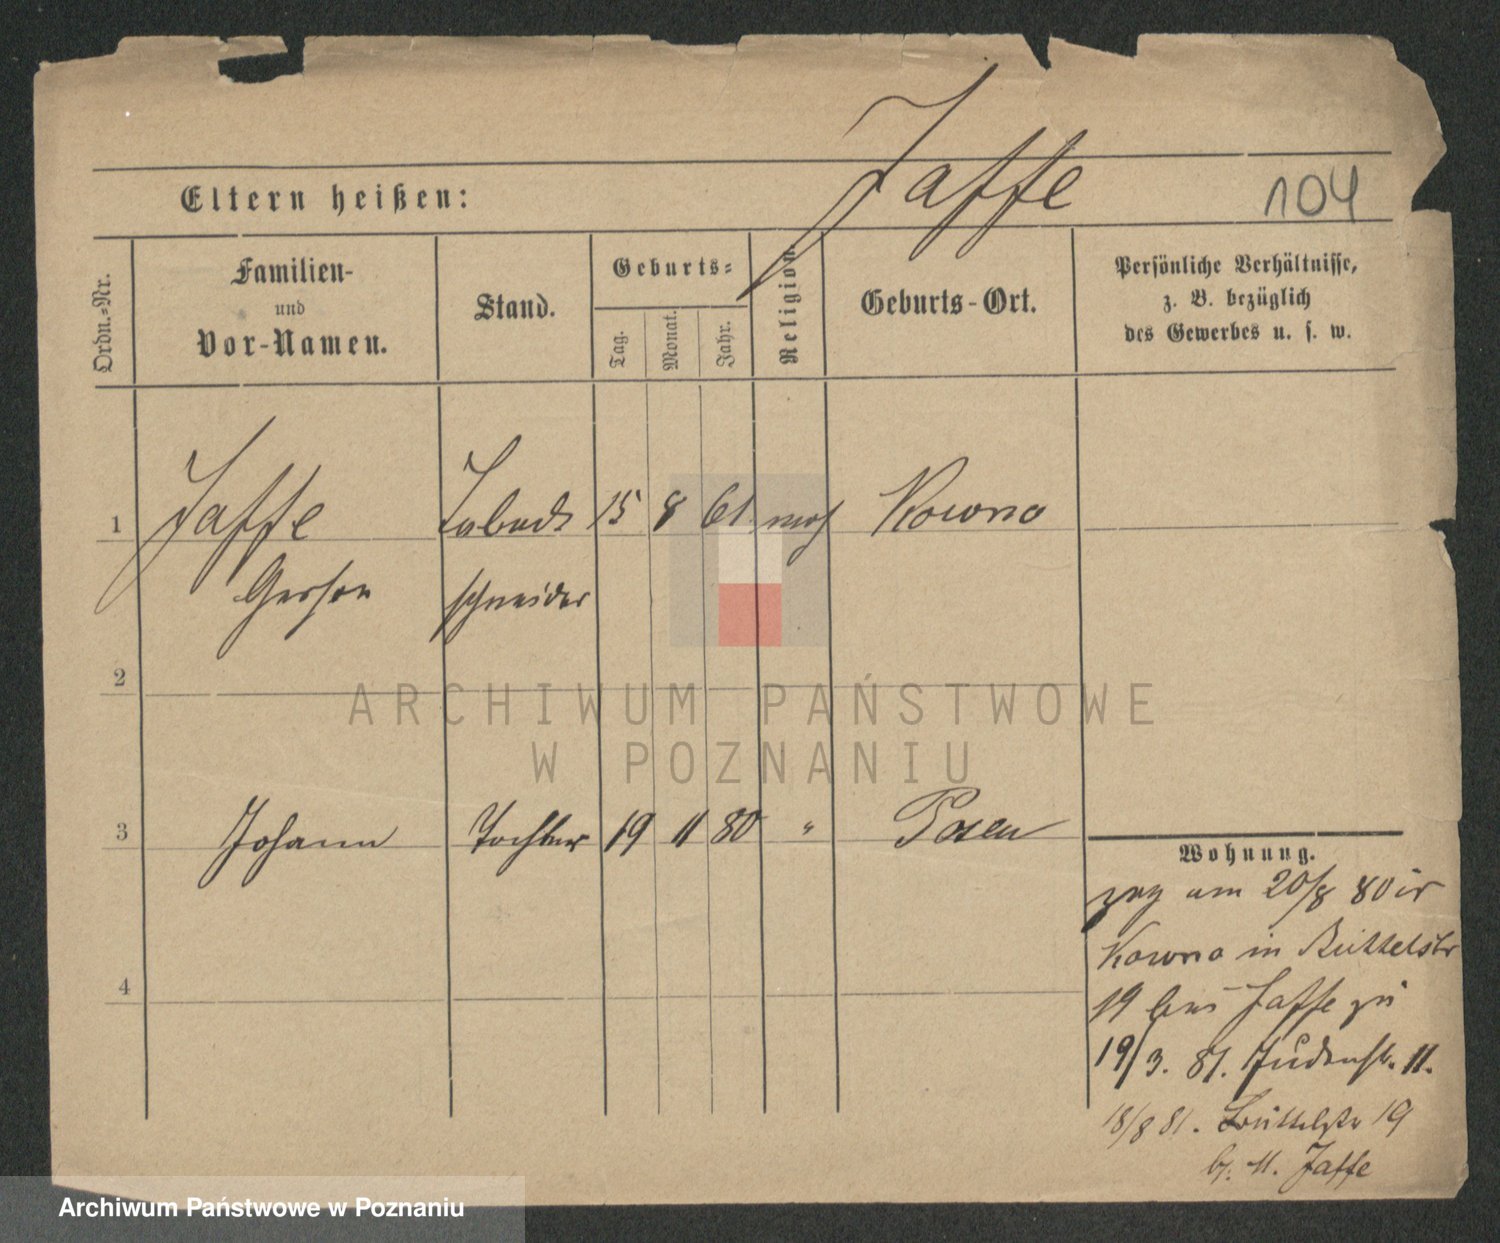 Jaffe
104
Eltern heißen:
Ordn.-Nr.
Familien-
und
Vor-Namen.
Stand.
Geburts-
Tag.
Monat.
Jahr.
Religion
Geburts-Ort.
Persönliche Verhältnisse,
z. B. bezüglich
des Gewerbes u. s. w.
1 Jaffe 15 8 61 mos Kowno
Gerson schneider
2
3 Johann Tochter 19 11 80 " Posen
Wohnung.
zog am 20/8 80
Kowno in Büttelstr
19 bei Jaffe zu
19/3. 81. Judenstr. 11.
18/8 81. Büttelstr 19
b. M. Jaffe
4
ARCHIWUM PAŃSTWOWE
W POZNANIU
Archiwum Państwowe w Poznaniu